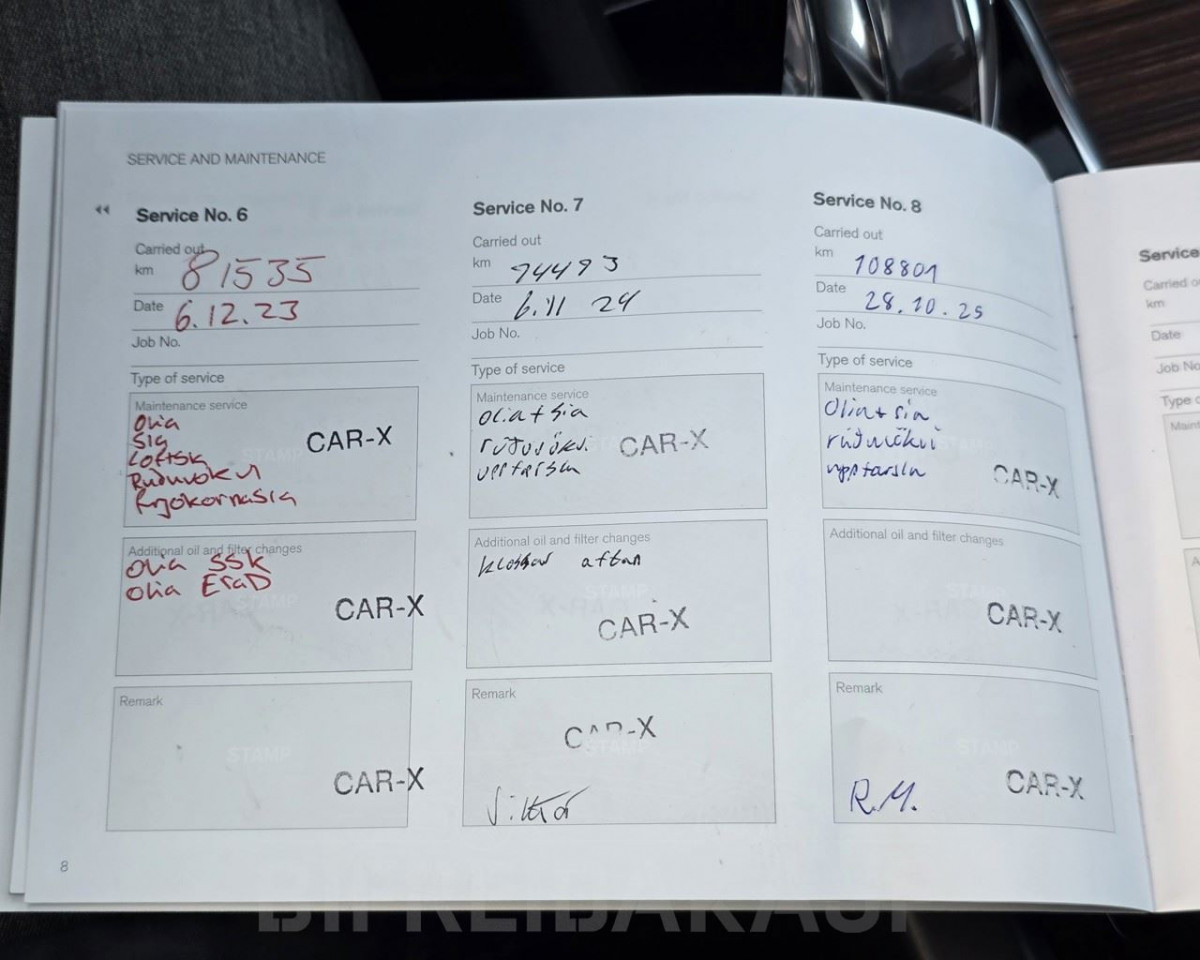 SERVICE AND MAINTENANCE
Service No. 6
Carried out
km 81535
Date 6.12.23
Job No.
Type of service
Maintenance service
Olia
Sia
Loftsk
Ruðuvökvi
Frjokornasia
CAR-X
STAMP
Additional oil and filter changes
Olia SSK
Olia
STAMP
CAR-X
Remark
STAMP
CAR-X
Service No. 7
Carried out
km 94493
Date 6.11 24
Job No.
Type of service
Maintenance service
Olia + Sia
rúðuvökv.
uppfærsla
CAR-X
Additional oil and filter changes
klossar aftan
CAR-X
Remark
CAR-X
STAMP
Service No. 8
Carried out
km 108801
Date 28.10.25
Job No.
Type of service
Maintenance service
Olia + sia
rúðuvökvi
CAR-X
Additional oil and filter changes
CAR-X
Remark
STAMP
R.M.
CAR-X
Service
Carried
km
Date
Job No
Type
8